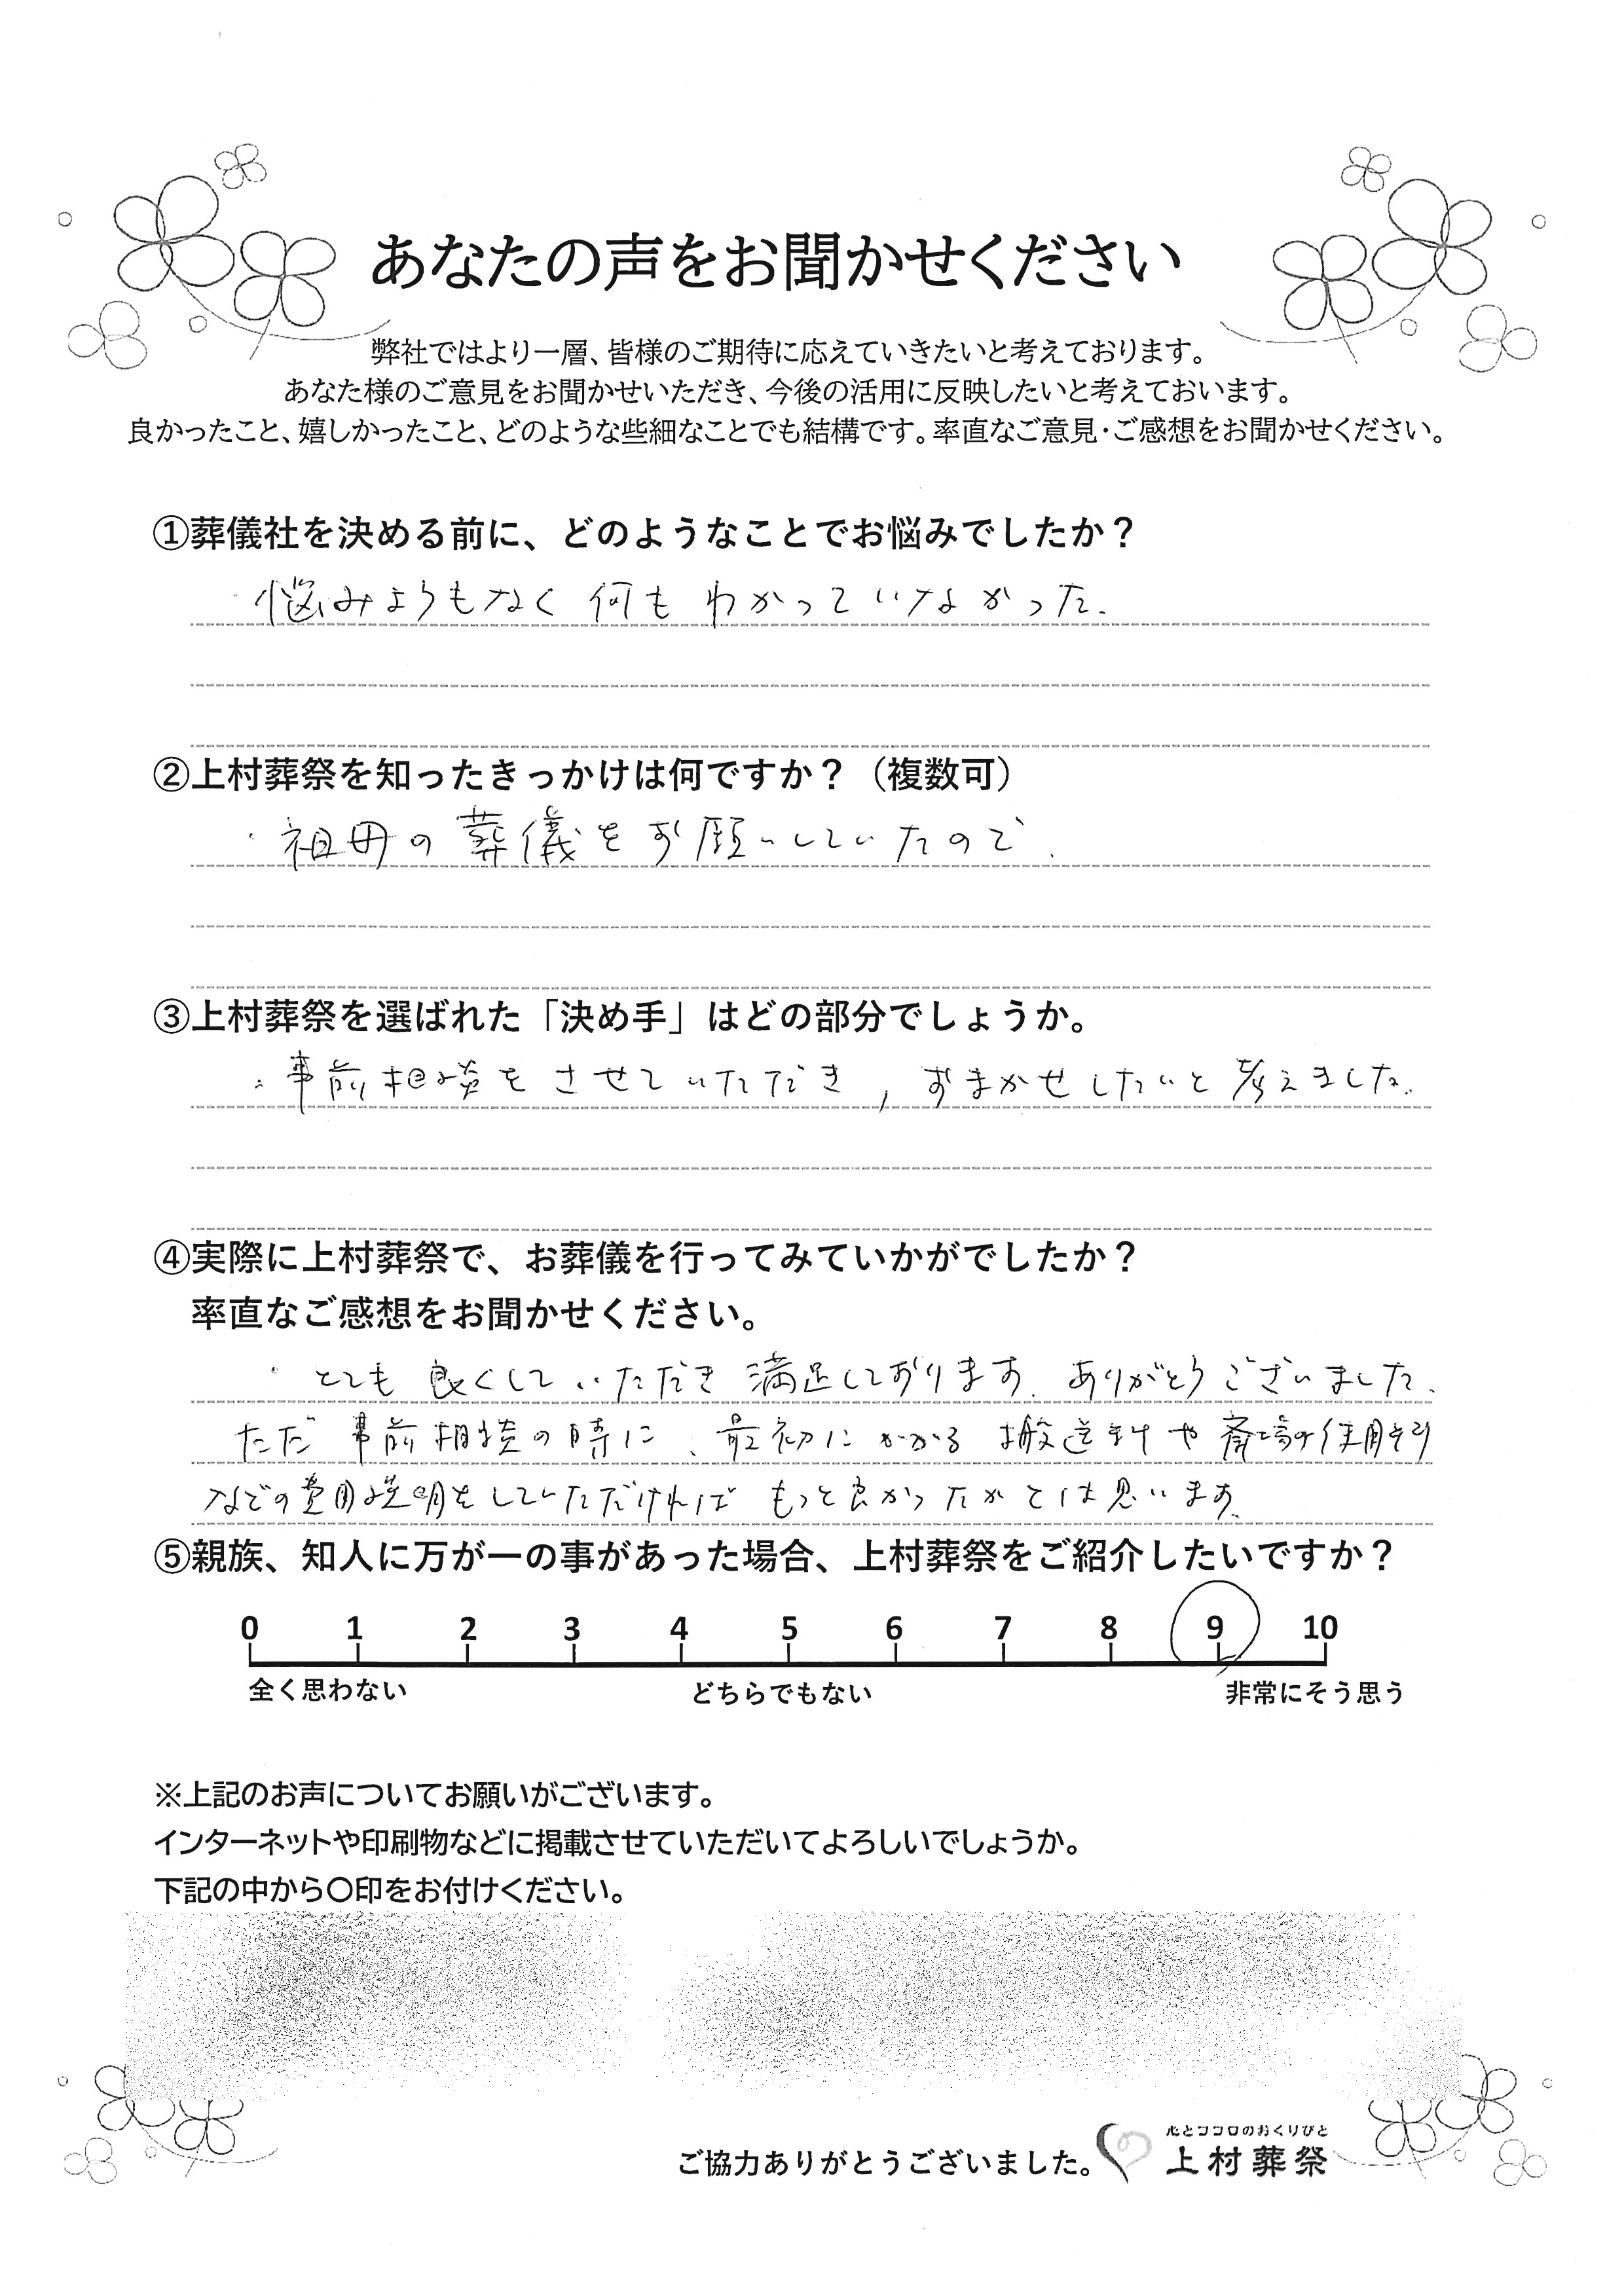 あなたの声をお聞かせください
弊社ではより一層、皆様のご期待に応えていきたいと考えております。
あなた様のご意見をお聞かせいただき、今後の活用に反映したいと考えておいます。
良かったこと、嬉しかったこと、どのような些細なことでも結構です。率直なご意見・ご感想をお聞かせください。
①葬儀社を決める前に、どのようなことでお悩みでしたか？
・悩みようもなく何もわかっていなかった.
②上村葬祭を知ったきっかけは何ですか？（複数可）
・祖母の葬儀をお願いしていたので.
③上村葬祭を選ばれた「決め手」はどの部分でしょうか。
・事前相談をさせていただき，おまかせしたいと考えました.
④実際に上村葬祭で、お葬儀を行ってみていかがでしたか？
率直なご感想をお聞かせください。
・とても良くしていただき満足しております. ありがとうございました.
ただ事前相談の時に、最初にかかる搬送料や斎場の使用料
などの費用説明をしていただければもっと良かったかとは思います.
⑤親族、知人に万が一の事があった場合、上村葬祭をご紹介したいですか？
0 1 2 3 4 5 6 7 8 9 10
全く思わない どちらでもない 非常にそう思う
※上記のお声についてお願いがございます。
インターネットや印刷物などに掲載させていただいてよろしいでしょうか。
下記の中から〇印をお付けください。
心とココロのおくりびと
ご協力ありがとうございました。 上村葬祭